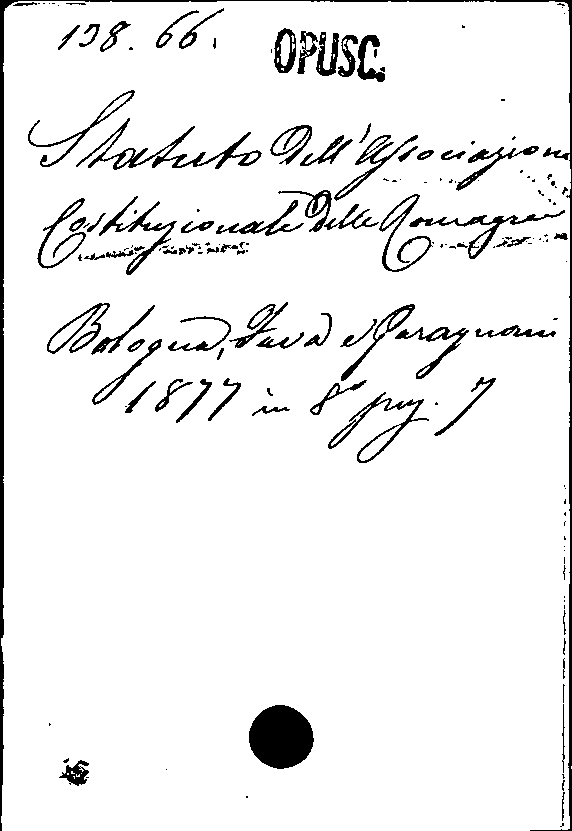 138. 66. OPUSC.
Statuto dell'Associazione
Costituzionale delle Romagne
Bologna, Fava e Garagnani
1877 in 8° pag. 7